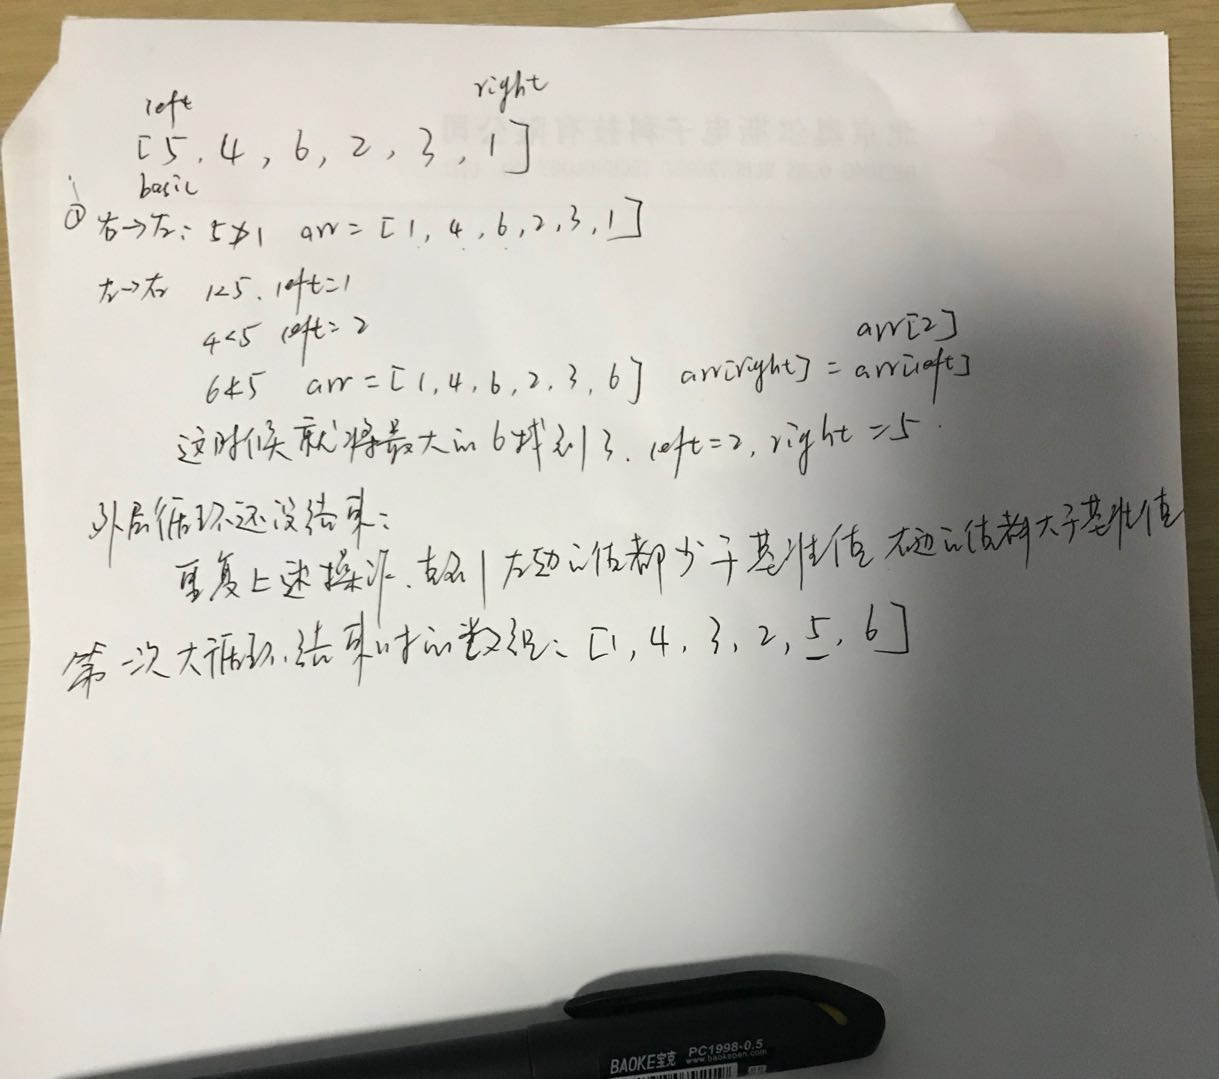 left right
[5, 4, 6, 2, 3, 1]
basic
① 右→左: 5≯1 arr = [1, 4, 6, 2, 3, 1]
左→右 1<5. left=1
4<5 left=2
arr[2]
6≮5 arr = [1, 4, 6, 2, 3, 6] arr[right] = arr[left]
这时候就将最大的6找到了. left=2, right=5.
外层循环还没结束:
重复上述操作. 左边的值都少于基准值 右边的值都大于基准值
第一次大循环结束时的数组: [1, 4, 3, 2, 5, 6]
BAOKE宝克 PC1998-0.5
www.baokepen.com